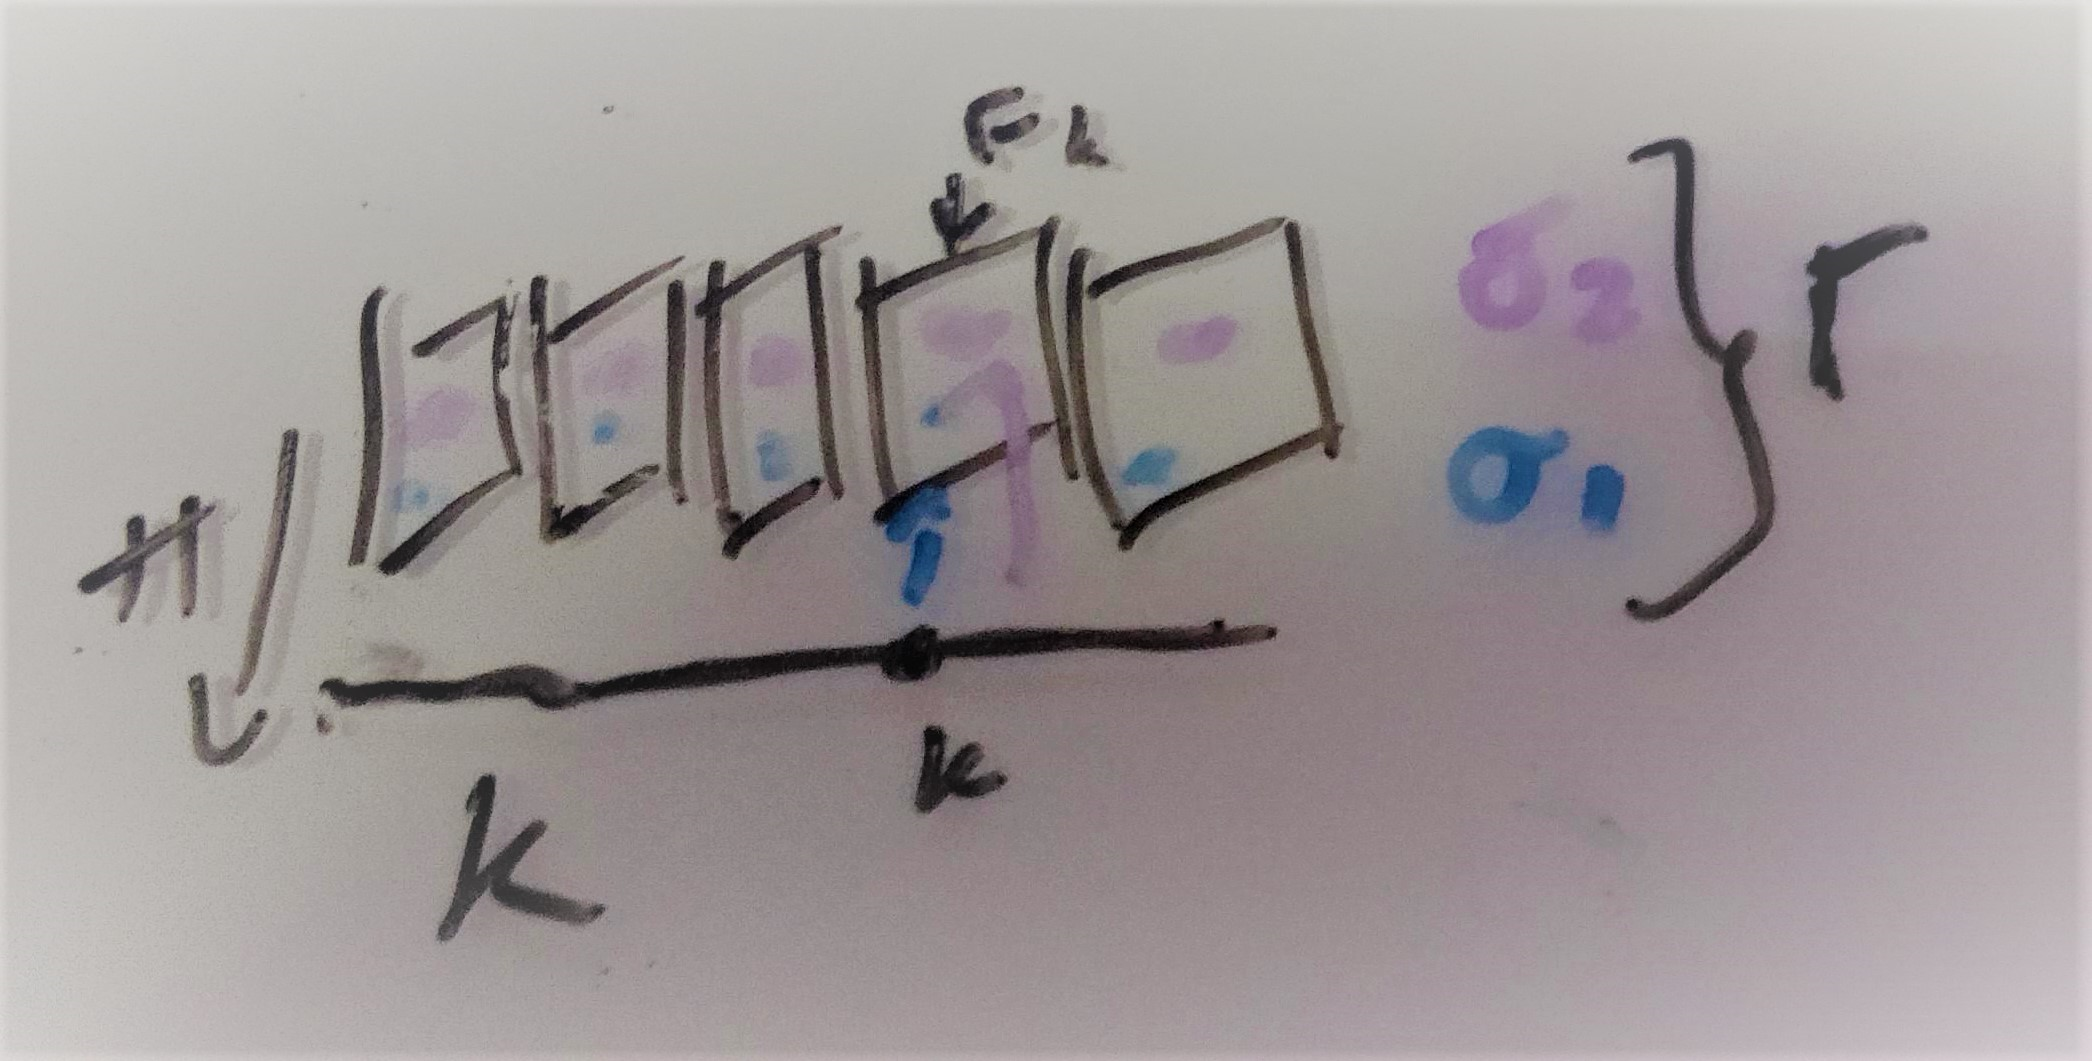 Fk
σ2
Γ
σ1
π
k
K